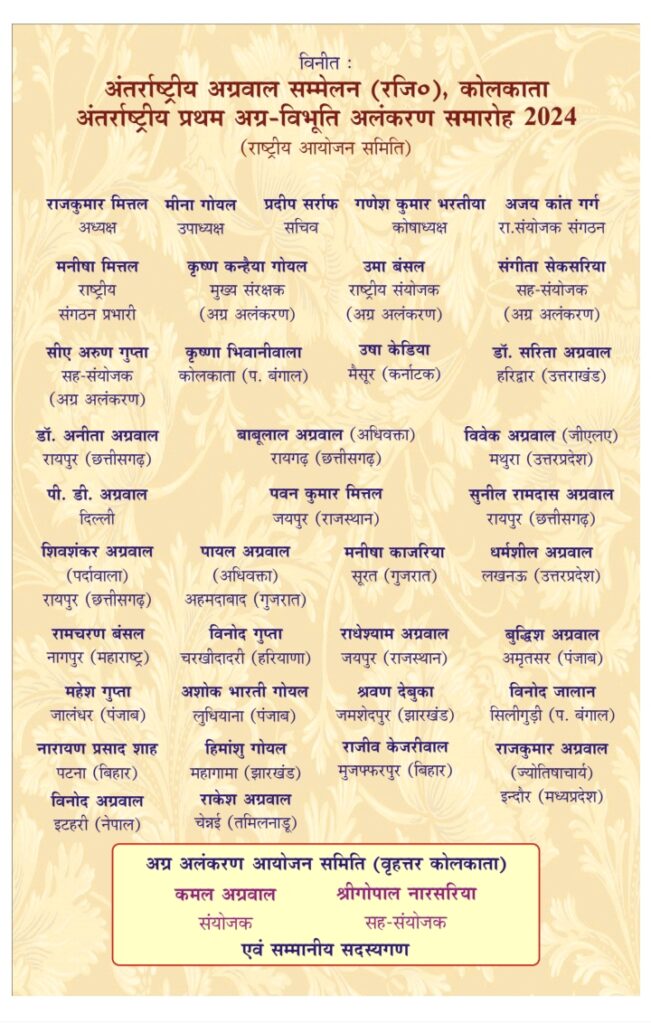 विनीत :
अंतर्राष्ट्रीय अग्रवाल सम्मेलन (रजि०), कोलकाता
अंतर्राष्ट्रीय प्रथम अग्र-विभूति अलंकरण समारोह 2024
(राष्ट्रीय आयोजन समिति)
राजकुमार मित्तल मीना गोयल प्रदीप सर्राफ गणेश कुमार भरतीया अजय कांत गर्ग
अध्यक्ष उपाध्यक्ष सचिव कोषाध्यक्ष रा.संयोजक संगठन
मनीषा मित्तल कृष्ण कन्हैया गोयल उमा बंसल संगीता सेकसरिया
राष्ट्रीय मुख्य संरक्षक राष्ट्रीय संयोजक सह-संयोजक
संगठन प्रभारी (अग्र अलंकरण) (अग्र अलंकरण) (अग्र अलंकरण)
सीए अरुण गुप्ता कृष्णा भिवानीवाला उषा केडिया डॉ. सरिता अग्रवाल
सह-संयोजक कोलकाता (प. बंगाल) मैसूर (कर्नाटक) हरिद्वार (उत्तराखंड)
(अग्र अलंकरण)
डॉ. अनीता अग्रवाल बाबूलाल अग्रवाल (अधिवक्ता) विवेक अग्रवाल (जीएलए)
रायपुर (छत्तीसगढ़) रायगढ़ (छत्तीसगढ़) मथुरा (उत्तरप्रदेश)
पी. डी. अग्रवाल पवन कुमार मित्तल सुनील रामदास अग्रवाल
दिल्ली जयपुर (राजस्थान) रायपुर (छत्तीसगढ़)
शिवशंकर अग्रवाल पायल अग्रवाल मनीषा काजरिया धर्मशील अग्रवाल
(पर्दावाला) (अधिवक्ता) सूरत (गुजरात) लखनऊ (उत्तरप्रदेश)
रायपुर (छत्तीसगढ़) अहमदाबाद (गुजरात)
रामचरण बंसल विनोद गुप्ता राधेश्याम अग्रवाल बुद्धिश अग्रवाल
नागपुर (महाराष्ट्र) चरखीदादरी (हरियाणा) जयपुर (राजस्थान) अमृतसर (पंजाब)
महेश गुप्ता अशोक भारती गोयल श्रवण देबुका विनोद जालान
जालंधर (पंजाब) लुधियाना (पंजाब) जमशेदपुर (झारखंड) सिलीगुड़ी (प. बंगाल)
नारायण प्रसाद शाह हिमांशु गोयल राजीव केजरीवाल राजकुमार अग्रवाल
पटना (बिहार) महागामा (झारखंड) मुजफ्फरपुर (बिहार) (ज्योतिषाचार्य)
इन्दौर (मध्यप्रदेश)
विनोद अग्रवाल राकेश अग्रवाल
इटहरी (नेपाल) चेन्नई (तमिलनाडू)
अग्र अलंकरण आयोजन समिति (वृहत्तर कोलकाता)
कमल अग्रवाल श्रीगोपाल नारसरिया
संयोजक सह-संयोजक
एवं सम्मानीय सदस्यगण